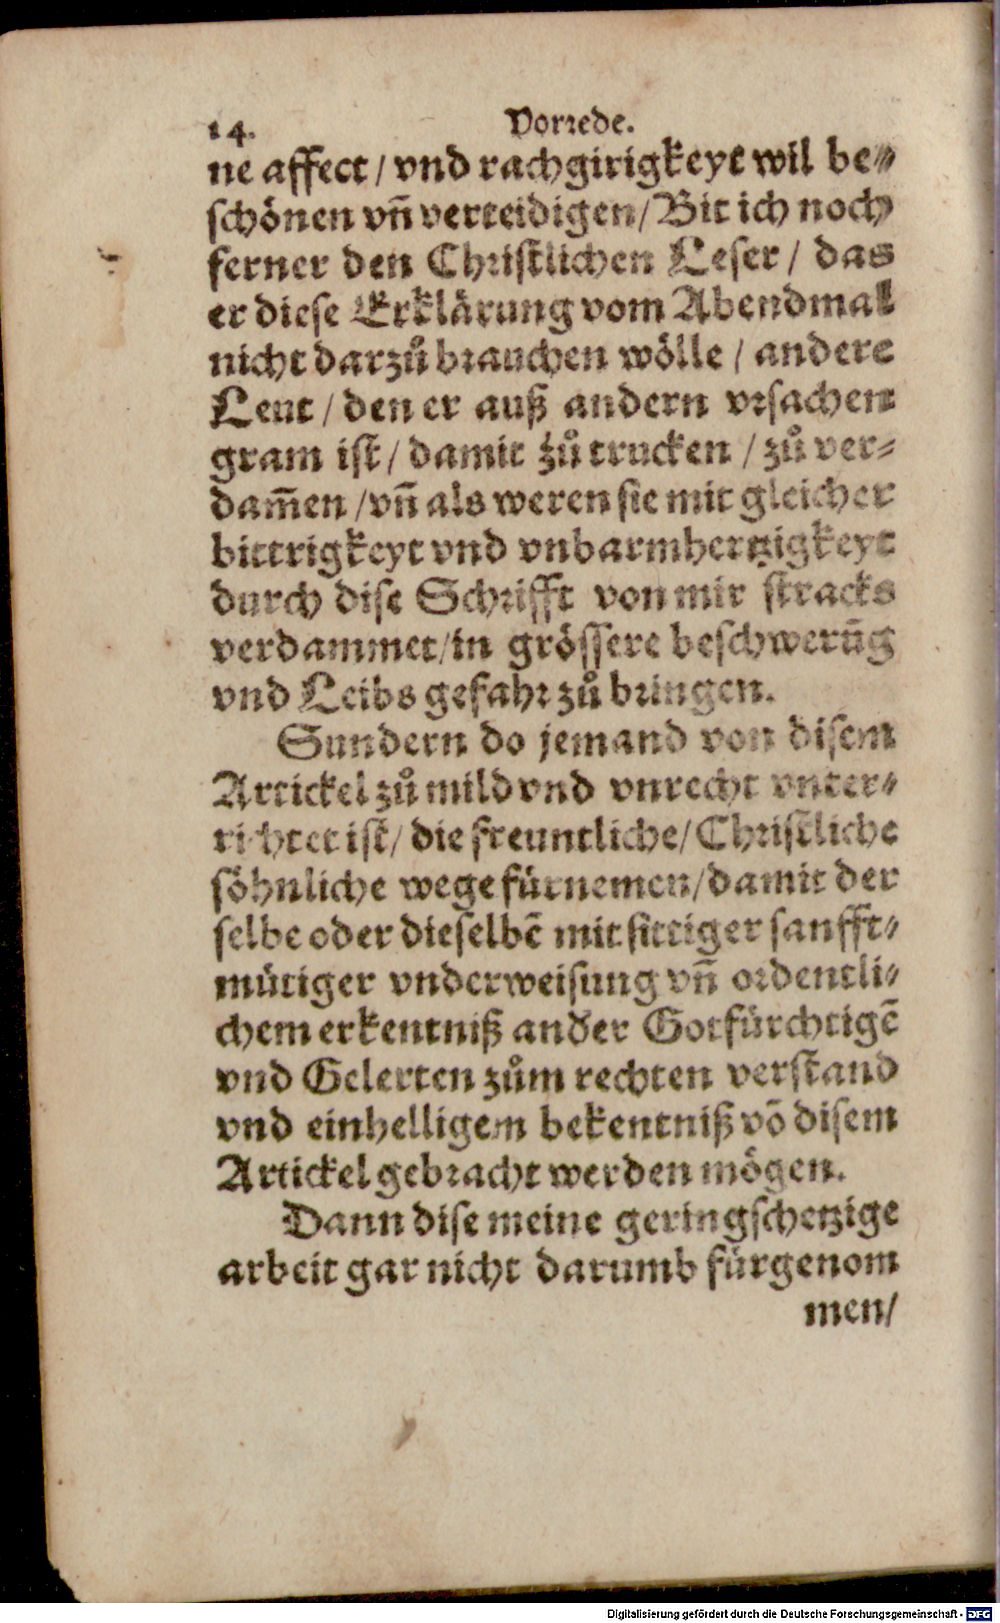 14. Vorrede.
ne affect / vnd rachgirigkeyt wil be⸗
schönen vñ verteidigen / Bit ich noch
ferner den Christlichen Leser / das
er diese Erklärung vom Abendmal
nicht darzů brauchen wölle / andere
Leut / den er auß andern vrsachen
gram ist / damit zů trucken / zů ver⸗
dam̄en / vñ als weren sie mit gleicher
bittrigkeyt vnd vnbarmhertzigkeyt
durch dise Schrifft von mir stracks
verdammet / in grössere beschwerūg
vnd Leibs gefahr zů bringen.
Sundern do jemand von disem
Artickel zů mild vnd vnrecht vnter⸗
richtet ist / die freuntliche / Christliche
söhnliche wege fürnemen / damit der
selbe oder dieselbē mit sittiger sanfft⸗
mütiger vnderweisung vñ ordentli⸗
chem erkentniß ander Gotfürchtigē
vnd Gelerten zům rechten verstand
vnd einhelligem bekentniß vō disem
Artickel gebracht werden mögen.
Dann dise meine geringschetzige
arbeit gar nicht darumb fürgenom
men /
Digitalisierung gefördert durch die Deutsche Forschungsgemeinschaft - DFG